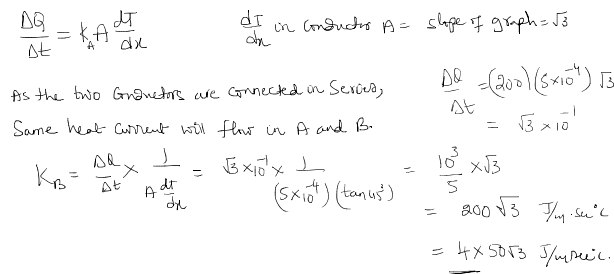 ΔQ/Δt = K_A A dT/dx
dT/dx in conductor A = slope of graph = √3
As the two conductors are connected in Series,
Same heat current will flow in A and B.
ΔQ/Δt = (200)(5×10⁻⁴) √3
= √3 × 10⁻¹
K_B = ΔQ/Δt × 1/(A dT/dx) = √3 × 10⁻¹ × 1/((5×10⁻⁴)(tan 45°)) = 10³/5 × √3
= 200√3 J/m·sec°C
= 4 × 50√3 J/m sec°C.